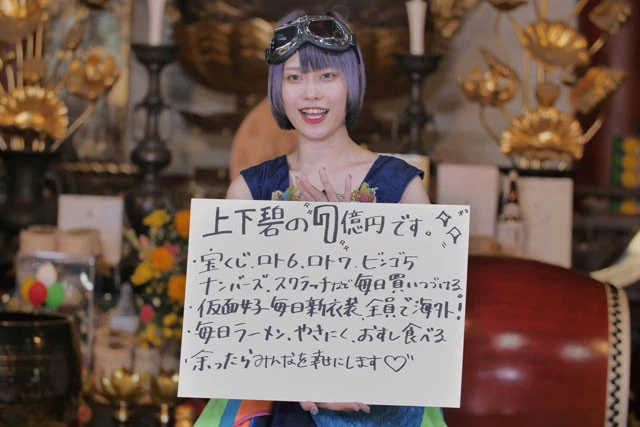 上下碧の"7億円です。
・宝くじ、ロト6、ロト7、ビンゴ5
ナンバーズ、スクラッチなど毎日買いつづける。
・仮面女子毎日新衣装、全員で海外!
・毎日ラーメン、やきにく、おすし食べる
・余ったらみんなを幸せにします♡